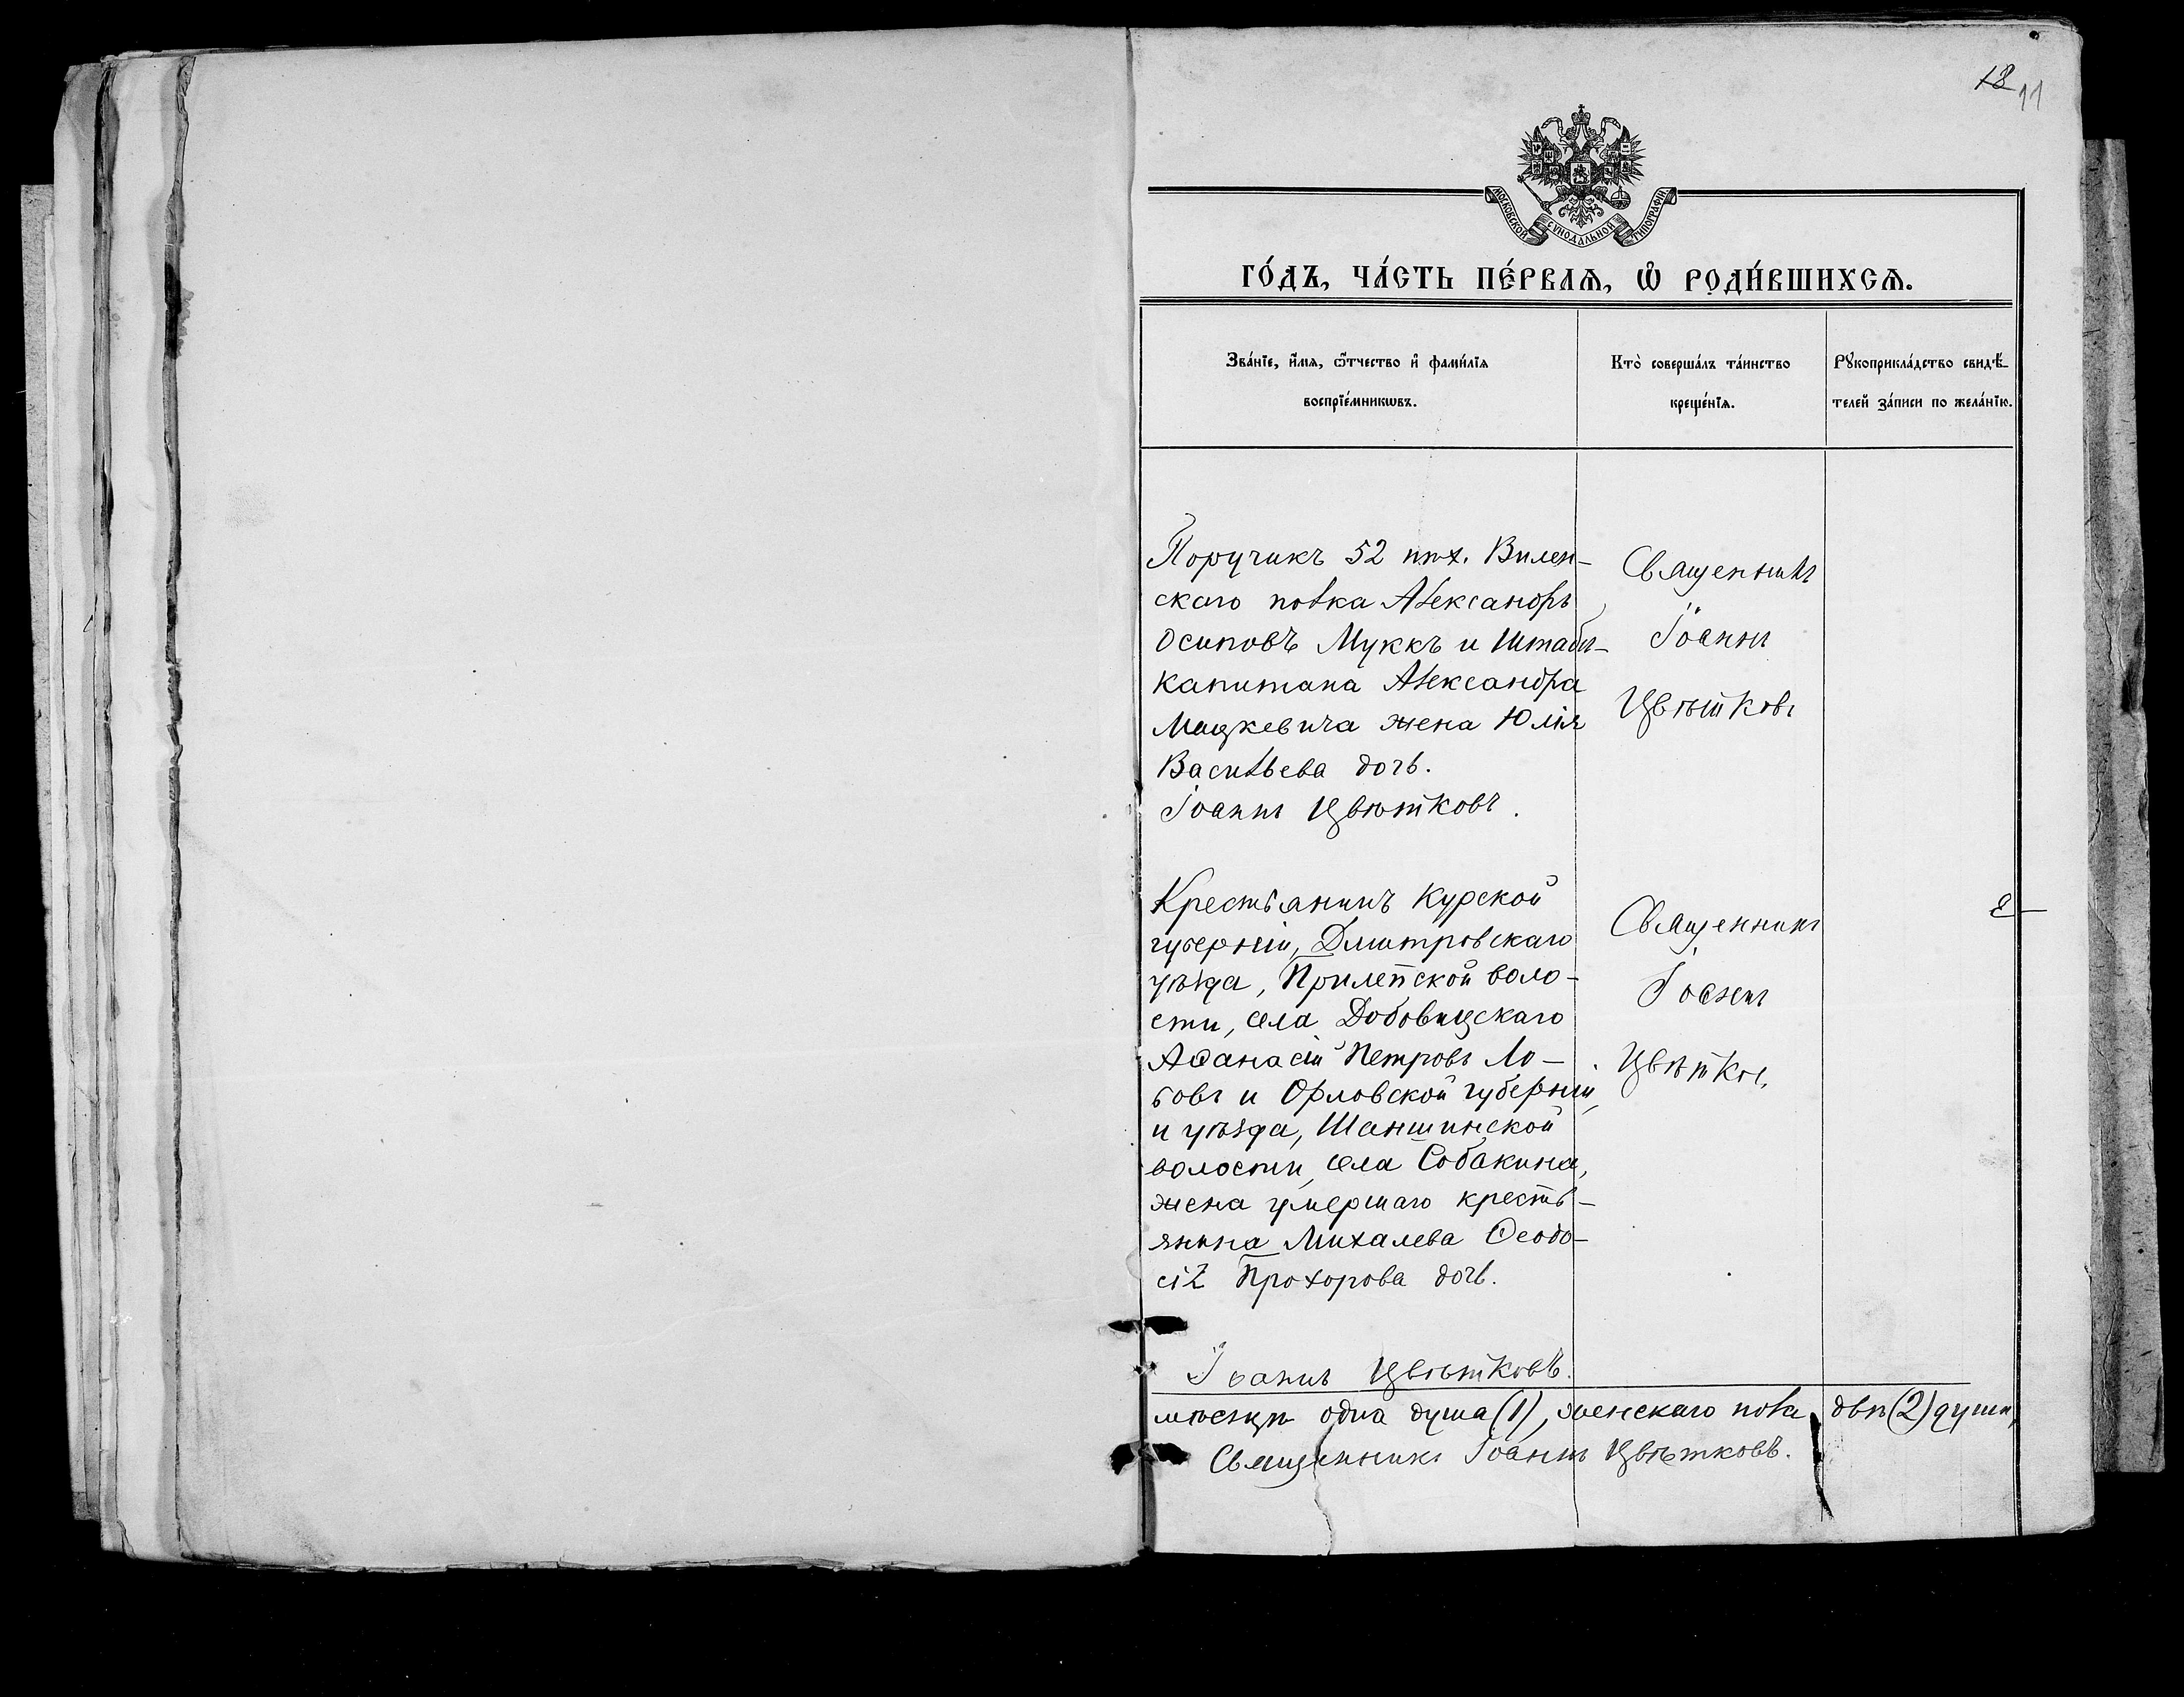 12 11
МОСКОВСКОЙ СУНОДАЛЬНОЙ ТИПОГРАФІИ
ГО́ДЪ, ЧА́СТЬ ПЕ́РВАѦ, Ѽ РОДИ́ВШИХСѦ.
Зва́нїе, и҆́мѧ, ѻ҆́тчество и҆ фами́лїѧ
воспрїе́мникѡвъ.
Кто̀ соверша́лъ та́инство
креще́нїѧ.
Рꙋкоприкла́дство свидѣ́-
телей за́писи по жела́нїю.
Поручикъ 52 пѣх. Вилен-
скаго полка Александръ
Осиповъ Муккъ и Штабсъ-
капитана Александра
Мацкевича жена Юлія
Васильева дочь.
Іоаннъ Цвѣтковъ.
Священникъ
Іоаннъ
Цвѣтковъ
Крестьянинъ Курской
губерніи, Дмитровскаго
уѣзда, Прилепской воло-
сти, села Добовицскаго
Аѳанасій Петровъ Ло-
бовъ и Орловской губерніи
и уѣзда, Шаншинской
волости, села Собакина,
жена умершаго кресть-
янина Михалева Ѳеодо-
сія Прохорова дочь.
Іоаннъ Цвѣтковъ.
Священникъ
Іоаннъ
Цвѣтков.
мѣсяцъ одна душа (1), женскаго пола двѣ (2) души,
Священникъ Іоаннъ Цвѣтковъ.